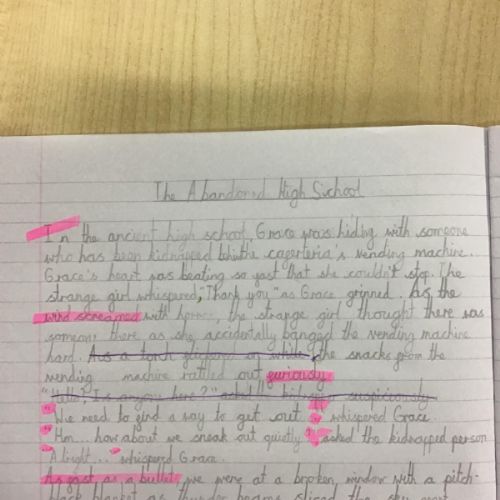 The Abandoned High School
In the ancient high school, Grace was hiding with someone
who has been kidnapped behind the caferteria's vending machine.
Grace's heart was beating so fast that she couldn't stop. The
strange girl whispered, "Thank you" as Grace grinned. As the
wind screamed with horror, the strange girl thought there was
someone there as she accidentally banged the vending machine
hard. As a torch on while, The snacks from the
vending machine rattled out furiously.
"Hello? Is anyone here?" asked kidnap suspiciously
"We need to find a way to get out" whispered Grace.
"Hm... how about we sneak out quietly" asked the kidnapped person.
"Alright..." whispered Grace.
As fast as a bullet, we were at a broken window with a pitch-
black blanket as thunder beams sliced the